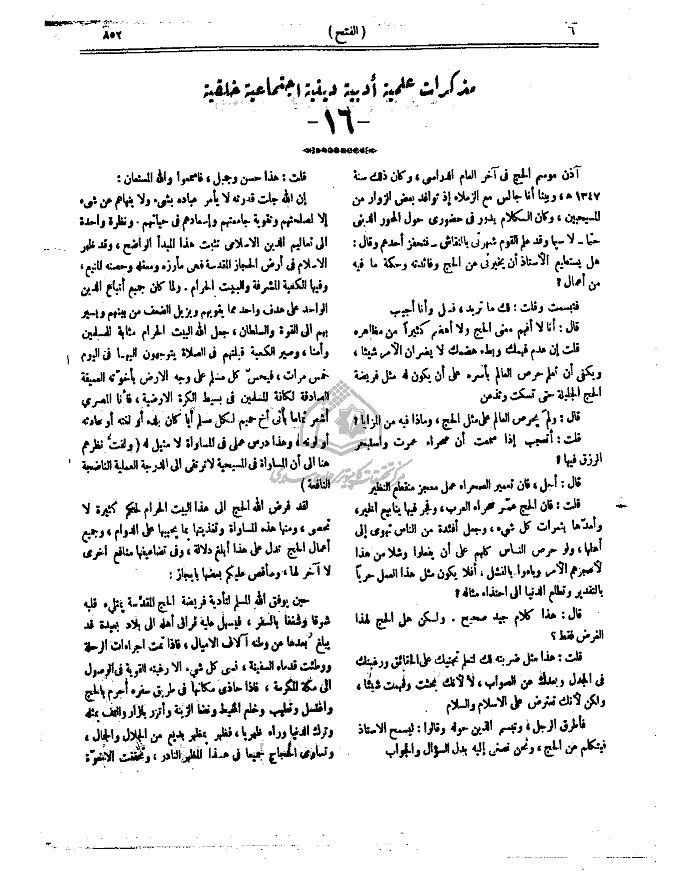 ٦
(الفتح)
٨٥٢
مذكرات علمية أدبية دينية اجتماعية خلقية
-١٦-
آذن موسم الحج فى آخر العام الدراسى ، وكان ذلك سنة
١٣٤٧ هـ ، وبينا أنا جالس مع الزملاء إذ توافد بعض الزوار من
المسيحيين ، وكان الكلام يدور فى حضورى حول المحور الدينى
حبًا ـ لا سيما وقد علم القوم شهرتى بالنقاش ـ فتحفز أحدهم وقال :
هل يستطيع الأستاذ أن يخبرنى عن الحج وفائدته وحكمة ما فيه
من أعمال ؟
فتبسمت وقلت : لك ما تريد ، فسل وأنا أجيب
قال : أنا لا أفهم معنى الحج ولا أهضم كثيراً من مظاهره
قلت إن عدم فهمك وبطء هضمك لا يضران الأمر شيئا ،
ويكفى أن تعلم حرص العالم بأسره على أن يكون له مثل فريضة
الحج الجليلة حتى تسكت وتذعن
قال : ولمَ يحرص العالم على مثل الحج ، وماذا فيه من المزايا ؟
قلت : أتعجب إذا سمعت أن صحراء عمرت واستبحر
الرزق فيها ؟
قال : أجل ، فان تعمير الصحراء عمل معجز منقطع النظير
قلت : فان الحج عمّر صحراء العرب ، ولجر فيها ينابيع الخير ،
وأمدّها بثمرات كل شىء ، وجعل أفئدة من الناس تهوى إلى
أهلها ، ولو حرص الناس كلهم على أن يفعلوا مثلا من هذا
لأعجزهم الأمر وباءوا بالفشل ، أفلا يكون مثل هذا العمل حرياً
بالتقدير وتطلع الدنيا الى احتذاء مثاله ؟
قال : هذا كلام جيد صحيح . ولكن هل الحج لهذا
الغرض فقط ؟
قلت : هذا مثل ضربته لك لتعلم تجنيك على الحقائق ورغبتك
فى الجدل وبعدك عن الصواب ، لا لأنك بحثت وفهمت شيئا ،
ولكن لأنك تعترض على الاسلام والسلام
فأطرق الرجل ، وتبسم الذين حوله وقالوا : ليسمح الاستاذ
فيتكلم عن الحج ، ونحن نصغى إليه بدل السؤال والجواب
قلت : هذا حسن وجميل ، فاسمعوا والله المستعان :
إن الله جلت قدرته لا يأمر عباده بشىء ولا ينهاهم عن شىء
إلا لمصلحتهم وتقوية جامعتهم وإسعادهم فى حياتهم . ونظرة واحدة
الى تعاليم الدين الاسلامى تثبت هذا المبدأ الواضح ، وقد ظهر
الاسلام فى أرض الحجاز المقدسة فهى مأرزه ومعقله وحصنه المنيع ،
وفيها الكعبة المشرفة والبيت الحرام . ولما كان جميع أتباع الدين
الواحد على هدف واحد مما يقويهم ويزيل الضعف من بينهم ويسير
بهم الى القوة والسلطان ، جعل الله البيت الحرام مثابة للمسلمين
وأمنا ، وصير الكعبة قبلتهم فى الصلاة يتوجهون اليها فى اليوم
خمس مرات ، فيحس كل مسلم على وجه الارض بأخوّته العميقة
الصادقة لكافة للمسلمين فى بسيط الكرة الارضية ، فأنا المصرى
أشعر تماما بأنى أخ حميم لكل مسلم أيا كان بلده أو لغته أو عادته
أو لونه ، وهذا درس عملى فى المساواة لا مثيل له ( ولفتُّ نظرهم
هنا الى أن المساواة فى المسيحية لا ترتقى الى الدرجة العملية الناضجة
النافعة )
لقد فرض الله الحج الى هذا البيت الحرام لحكم كثيرة لا
تحصى ، ومنها هذه المساواة وتغذيتها بما يحييها على الدوام ، وجميع
أعمال الحج تدل على هذا أبلغ دلالة ، وفى تضاعيفها منافع اخرى
لا آخر لها ، وسأقص عليكم بعضها بايجاز :
حين يوفق الله المسلم لتأدية فريضة الحج المقدسة يمتلىء قلبه
شوقا وشغفا بالسفر ، فيسهل عليه فراق أهله الى بلاد بعيدة قد
يبلغ بُعدها عن وطنه آلاف الاميال ، فاذا تمت اجراءات الرحلة
ووطئت قدماه السفينة ، نسى كل شىء الا رغبته القوية فى الوصول
الى مكة المكرمة ، فاذا حاذى مكانها فى طريق سفره أحرم بالحج
واغتسل وتطيب وخلع المخيط ونضا الزينة وأتزر بازار والتف بمثله
وترك الدنيا وراء ظهريا ، فظهر بمظهر بديع من الجلال والجمال ،
وتساوى الحجاج جميعا فى هذا المظهر النادر ، وتحققت الاخوّة